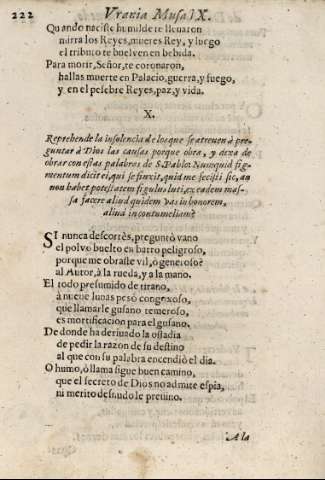 222 Vrania Musa IX.
Quando naciste humilde te lleuaron
mirra los Reyes, mueres Rey, y luego
el tributo te buelven en bebida.
Para morir, Señor, te coronaron,
hallas muerte en Palacio, guerra, y fuego,
y en el pesebre Reyes, paz, y vida.
X.
Reprehende la insolencia de los que se atreuen à pre-
guntar à Dios las causas porque obra, y dexa de
obrar con estas palabras de S. Pablo: Nunquid fig-
mentum dicit ei, qui se finxit, quid me fecisti sic, an
non habet potestatem figulus luti, ex eadem mas-
sa facere aliud quidem vas in honorem,
aliud in contumeliam?
SI nunca descortès, preguntò vano
el polvo buelto en barro peligroso,
porque me obraste vil, ò generoso?
al Autor, à la rueda, y a la mano.
El todo presumido de tirano,
à nueue lunas pesò congoxoso,
que llamarle gusano temeroso,
es mortificacion para el gusano.
De donde ha deriuado la ossadia
de pedir la razon de su destino
al que con su palabra encendiò el dia.
O humo, ò llama sigue buen camino,
que el secreto de Dios no admite espia,
ni merito desnudo le preuino.
A la